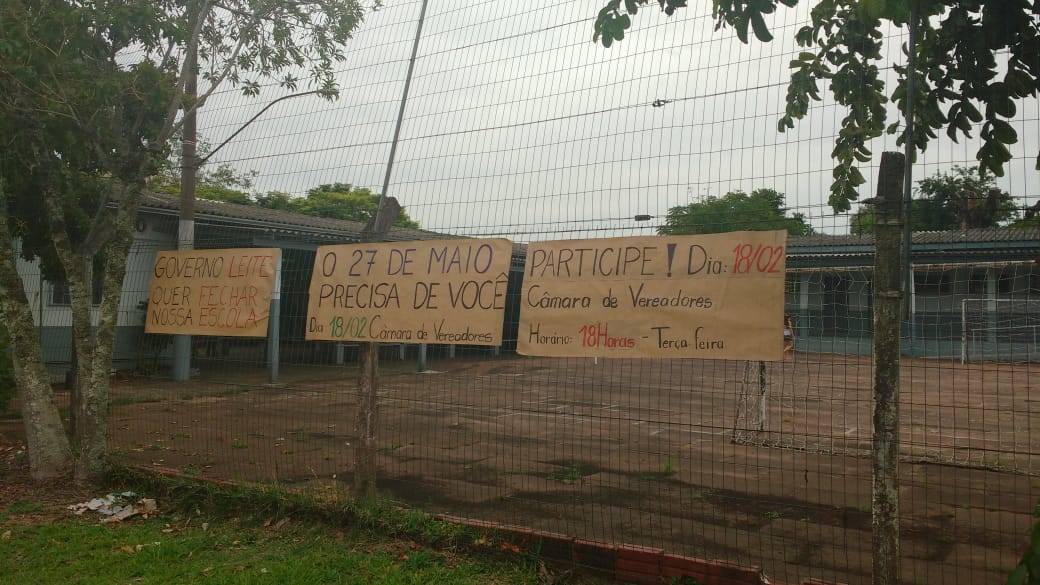 GOVERNO LEITE
QUER FECHAR
NOSSA ESCOLA
O 27 DE MAIO
PRECISA DE VOCÊ
Dia 18/02 Câmara de Vereadores
PARTICIPE! Dia: 18/02
Câmara de Vereadores
Horário: 18Horas - Terça feira